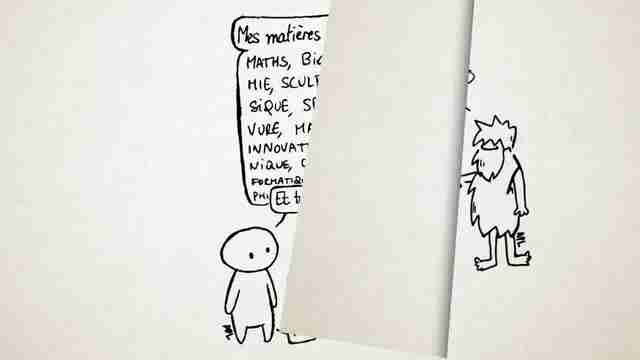 Mes matières
MATHS, BIO
MIE, SCULP
SIQUE, SP
VURE, MA
INNOVAT
NIQUE,
FORMATIQ
PHI
Et t